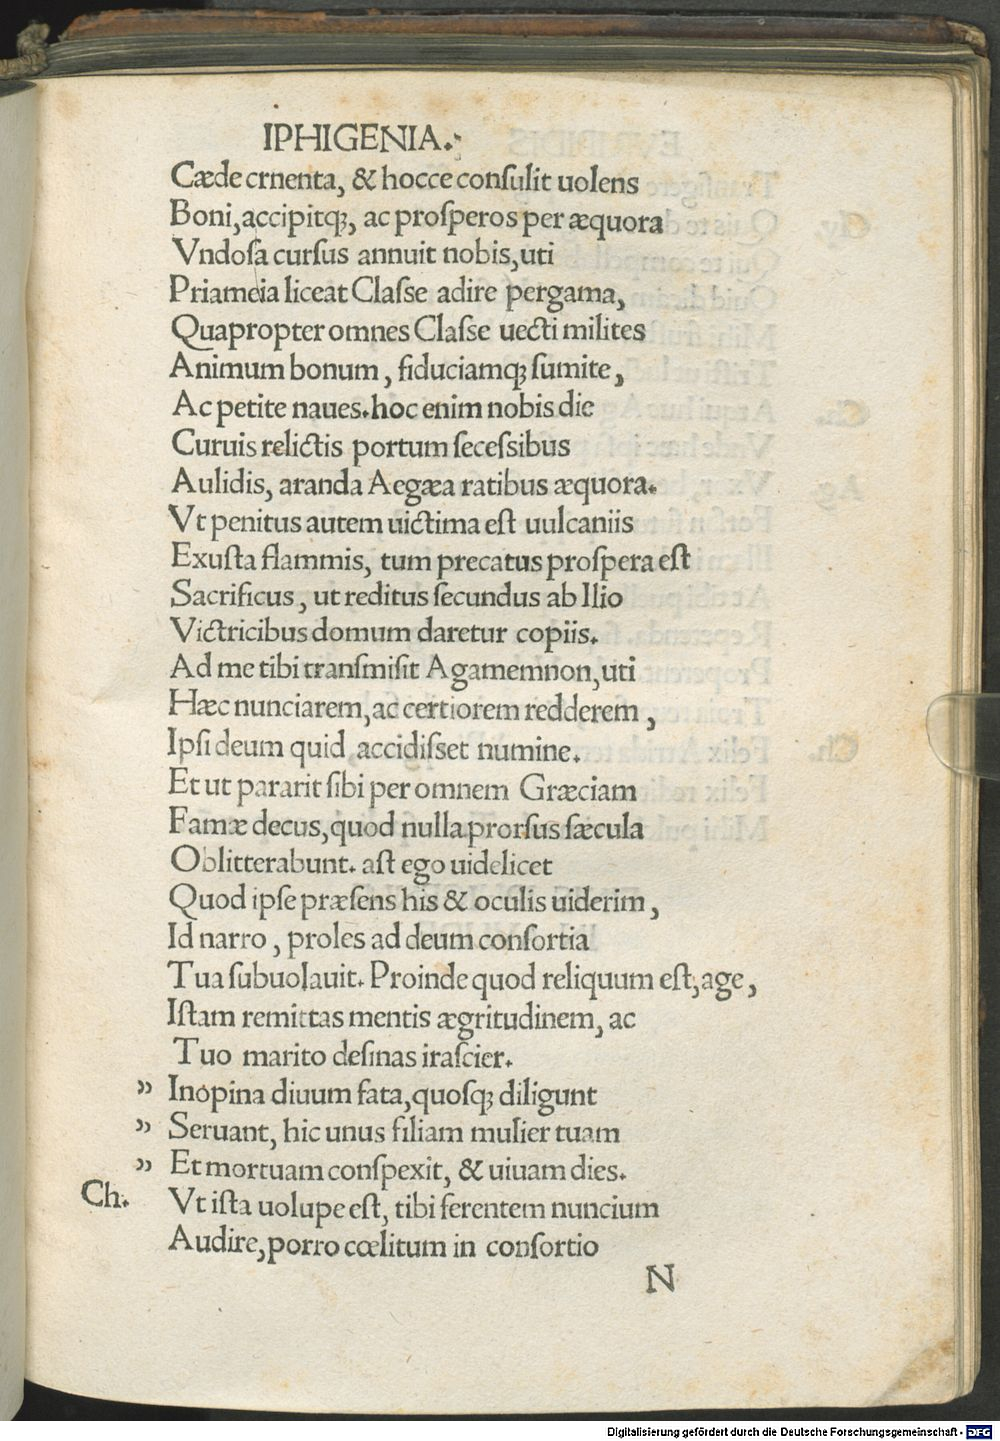 IPHIGENIA.
Cæde crnenta, & hocce conſulit uolens
Boni, accipitq;, ac proſperos per æquora
Vndoſa curſus annuit nobis, uti
Priameia liceat Claſse adire pergama,
Quapropter omnes Claſse uecti milites
Animum bonum, fiduciamq; ſumite,
Ac petite naues. hoc enim nobis die
Curuis relictis portum ſeceſsibus
Aulidis, aranda Aegæa ratibus æquora.
Vt penitus autem uictima eſt uulcaniis
Exuſta flammis, tum precatus proſpera eſt
Sacrificus, ut reditus ſecundus ab Ilio
Victricibus domum daretur copiis.
Ad me tibi tranſmiſit Agamemnon, uti
Hæc nunciarem, ac certiorem redderem,
Ipſi deum quid accidiſset numine.
Et ut pararit ſibi per omnem Græciam
Famæ decus, quod nulla prorſus ſæcula
Oblitterabunt. aſt ego uidelicet
Quod ipſe præſens his & oculis uiderim,
Id narro, proles ad deum conſortia
Tua ſubuolauit. Proinde quod reliquum eſt, age,
Iſtam remittas mentis ægritudinem, ac
Tuo marito deſinas iraſcier.
" Inopina diuum fata, quoſq; diligunt
" Seruant, hic unus filiam mulier tuam
" Et mortuam conſpexit, & uiuam dies.
Ch. Vt iſta uolupe eſt, tibi ferentem nuncium
Audire, porro cœlitum in conſortio
N
Digitalisierung gefördert durch die Deutsche Forschungsgemeinschaft - DFG